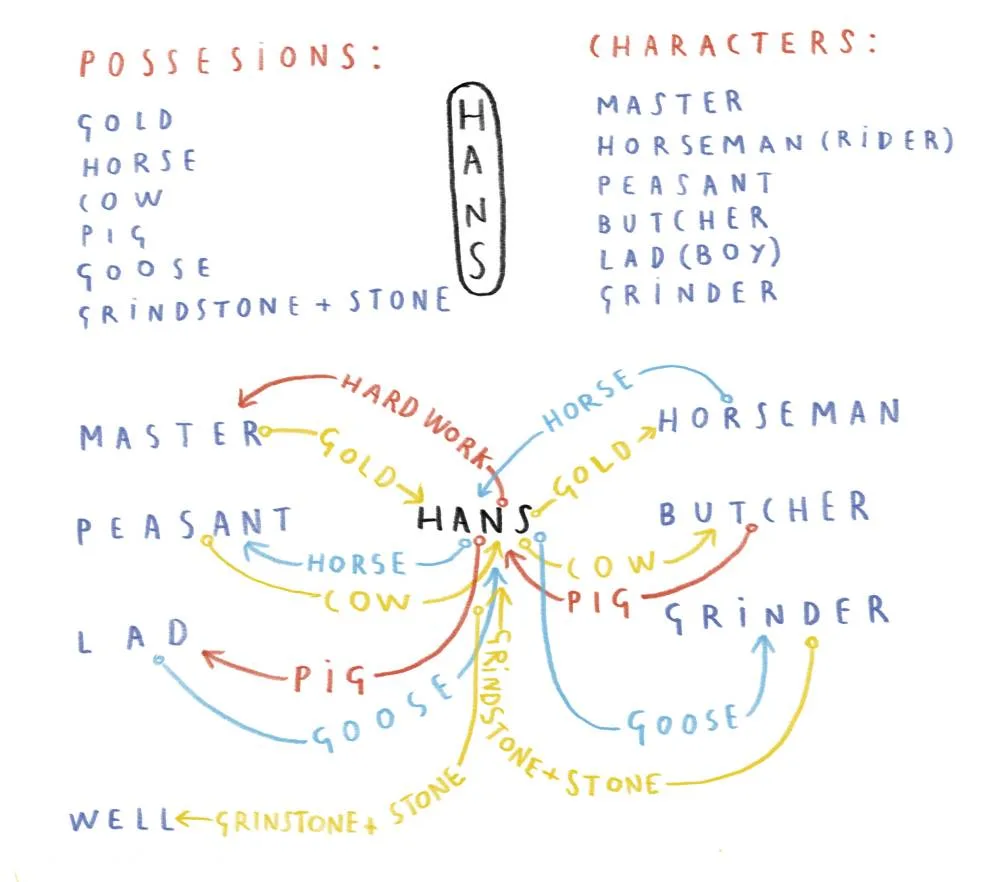 POSSESIONS:
GOLD
HORSE
COW
PIG
GOOSE
GRINDSTONE + STONE
HANS
CHARACTERS:
MASTER
HORSEMAN (RIDER)
PEASANT
BUTCHER
LAD (BOY)
GRINDER
HARD WORK
HORSE
MASTER
GOLD
GOLD
HORSEMAN
HANS
PEASANT
HORSE
COW
BUTCHER
COW
PIG
LAD
PIG
GOOSE
GRINDER
GOOSE
GRINDSTONE + STONE
WELL
GRINSTONE + STONE